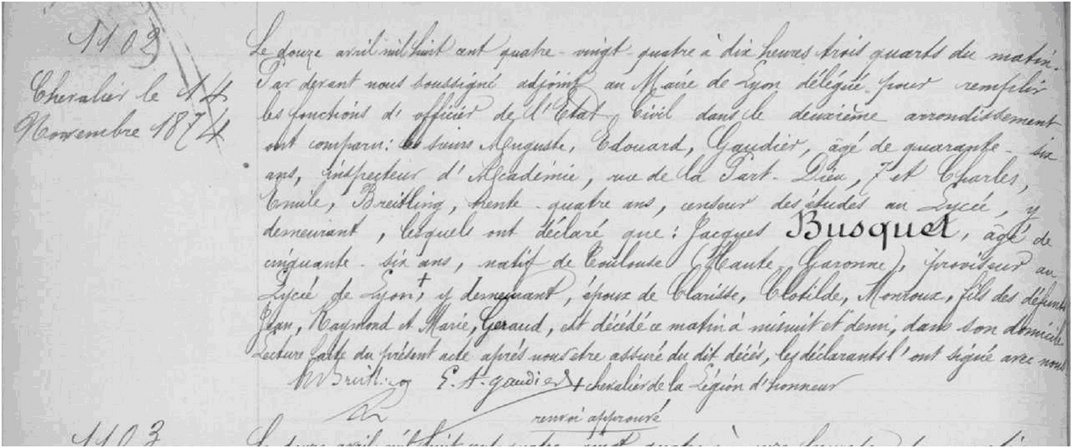 1102
Chevalier le 14
Novembre 1874
Le douze avril mil huit cent quatre-vingt-quatre à dix heures trois quarts du matin.
Par devant nous soussigné adjoint au Maire de Lyon délégué pour remplir
les fonctions d'officier de l'Etat Civil dans le deuxième arrondissement
ont comparu: les sieurs Auguste, Edouard, Gaudier, âgé de quarante-six
ans, inspecteur d'Académie, rue de la Part-Dieu, 7 et Charles,
Emile, Breitling, trente-quatre ans, censeur des études au Lycée, y
demeurant, lesquels ont déclaré que: Jacques Busquet, âgé de
cinquante-six ans, natif de Toulouse (Haute Garonne), proviseur au
Lycée de Lyon + y demeurant, époux de Clarisse, Clotilde, Monroux, fils des défunts
Jean, Raymond et Marie, Geraud, est décédé ce matin à minuit et demi, dans son domicile
Lecture faite du présent acte après nous être assuré du dit décès, les déclarants l'ont signé avec nous
E. A. Gaudier + chevalier de la Légion d'honneur
renvoi approuvé
1103